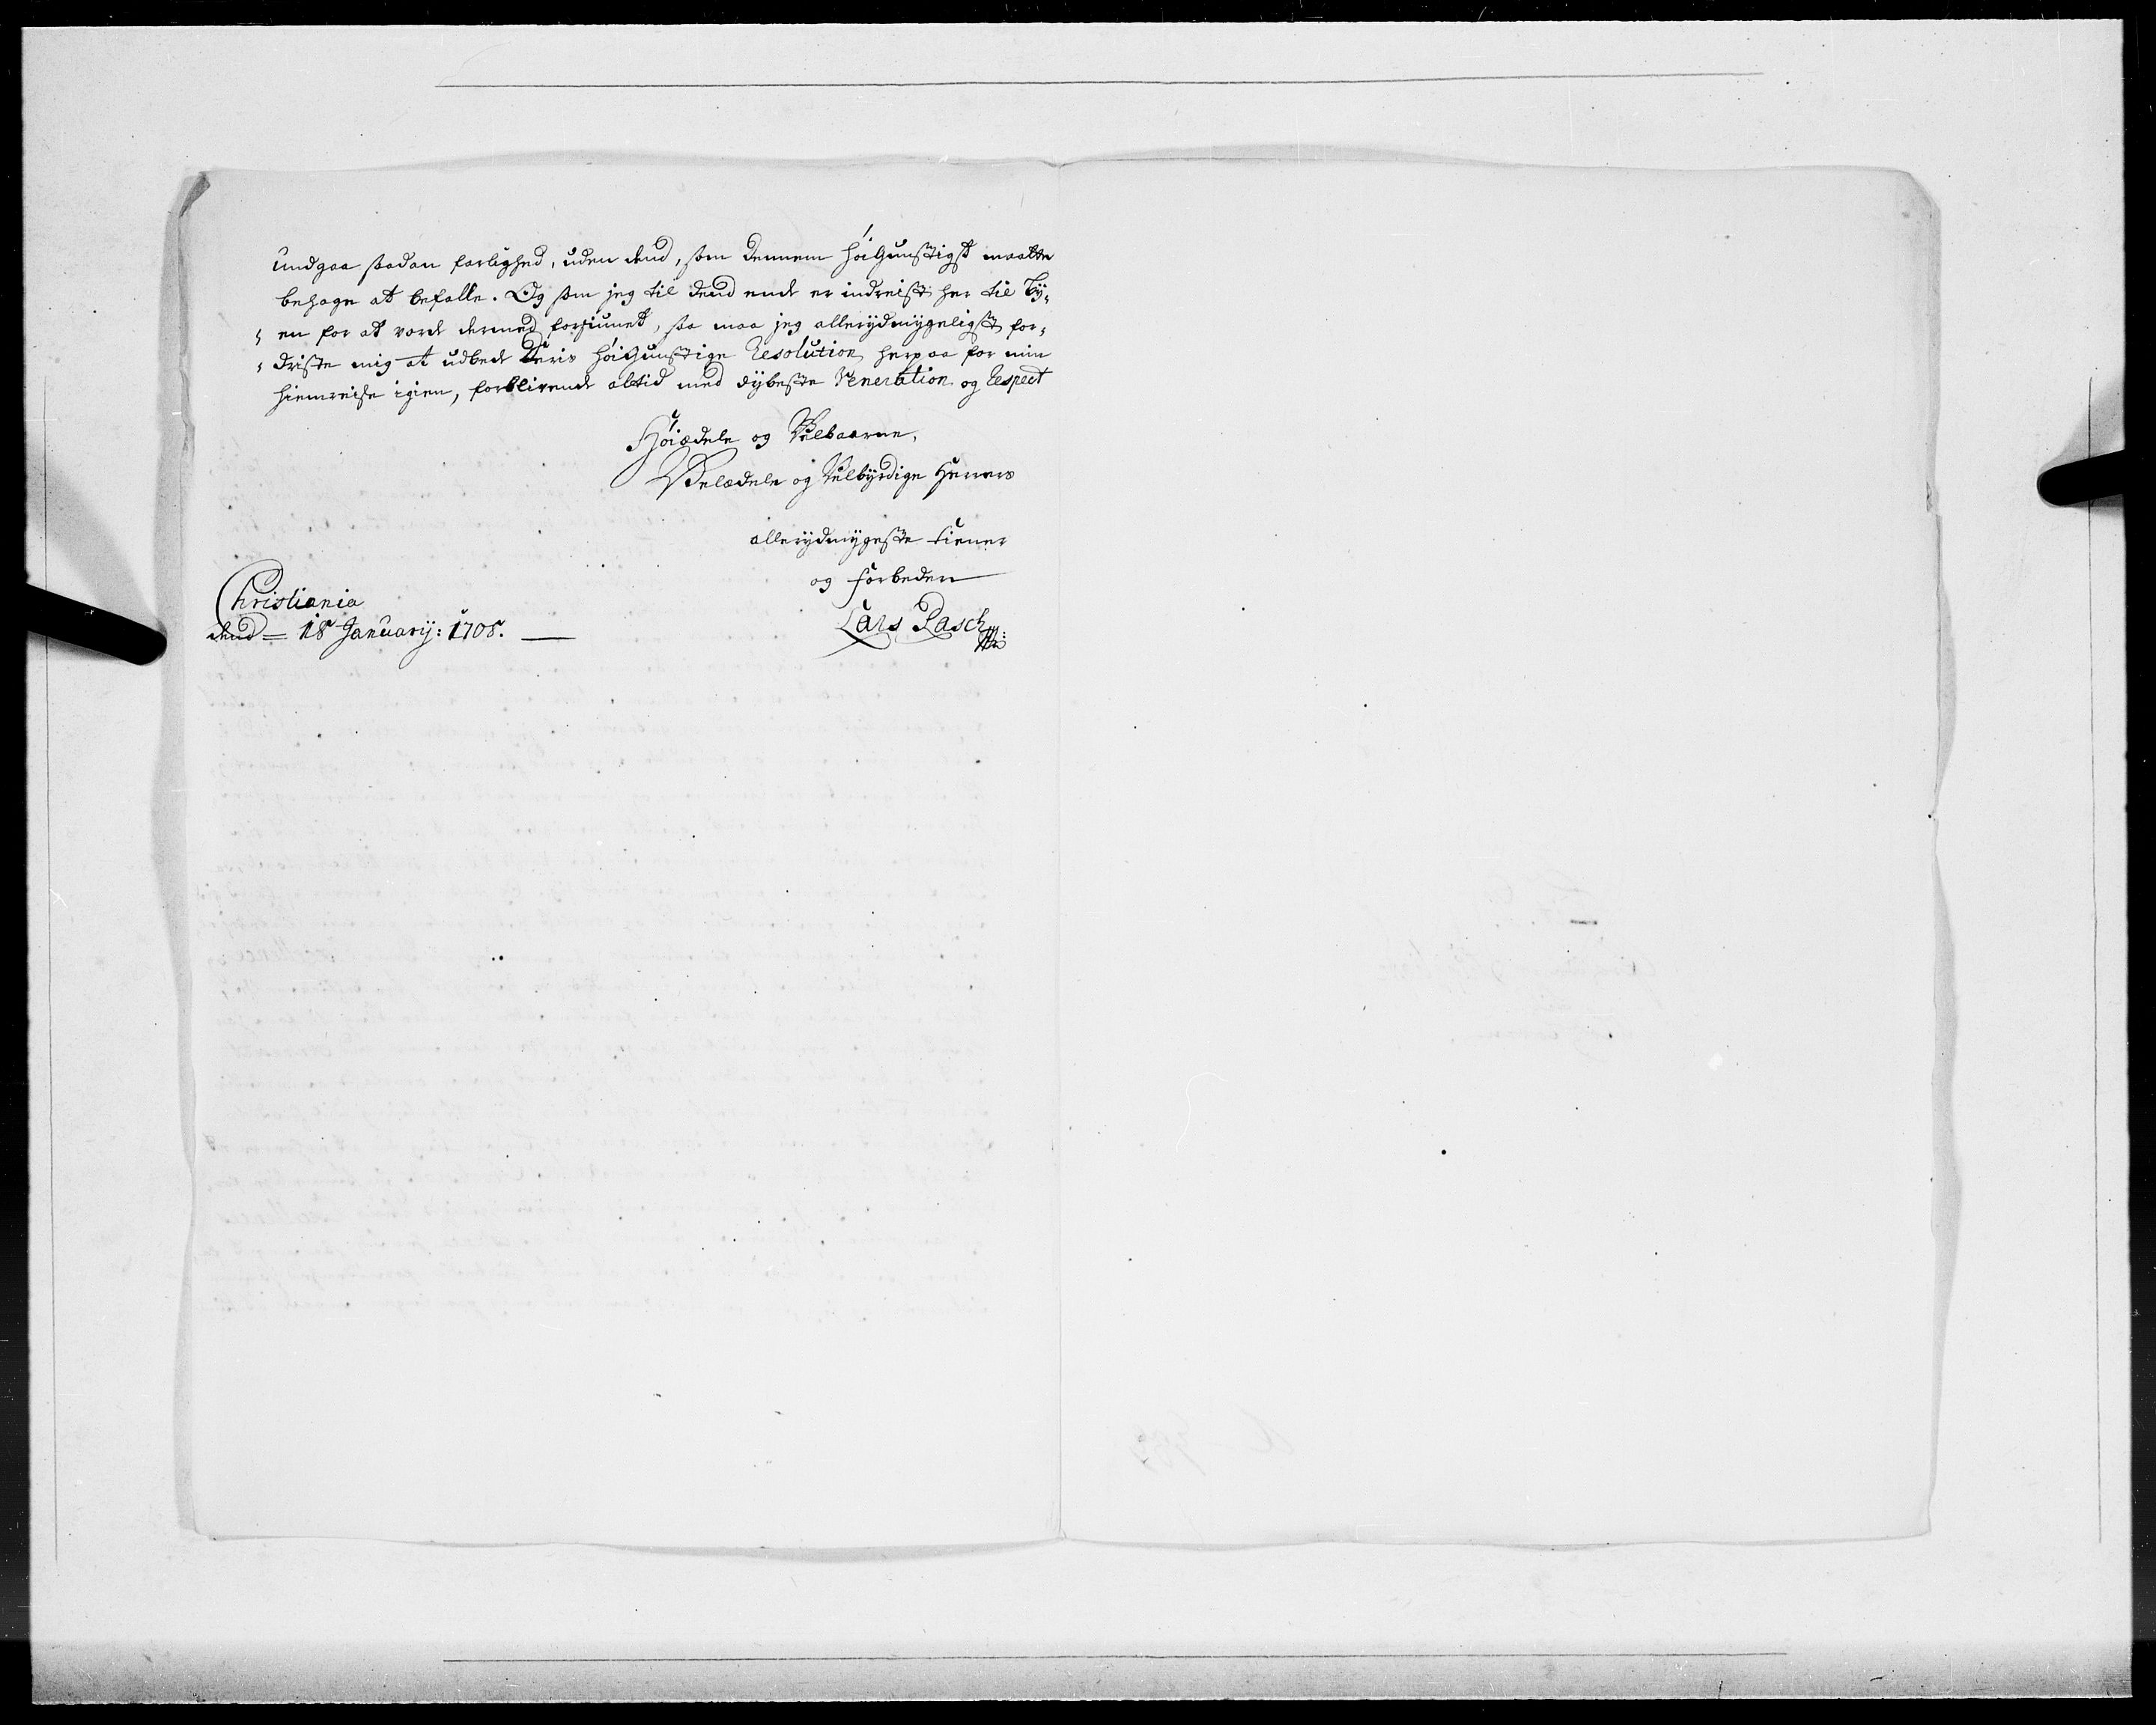 undgaa saadan farlighed, uden dend, som dennem høigunstigst maatte
behage at befalle. Og som jeg til dend ende er indreist her til By-
en for at vorde dermed forsiunet, saa maa jeg allerydmygeligst for-
driste mig at udbede deris høigunstige Resolution herpaa for min
hiemreise igien, forblivende altid med dybeste Veneration og Respect
Høiædele og Velbaarne,
Velædele og Velbyrdige Herrers
allerydmygeste tiener
og forbeder
Christiania
dend = 18 January: 1705.
Lars Pasch